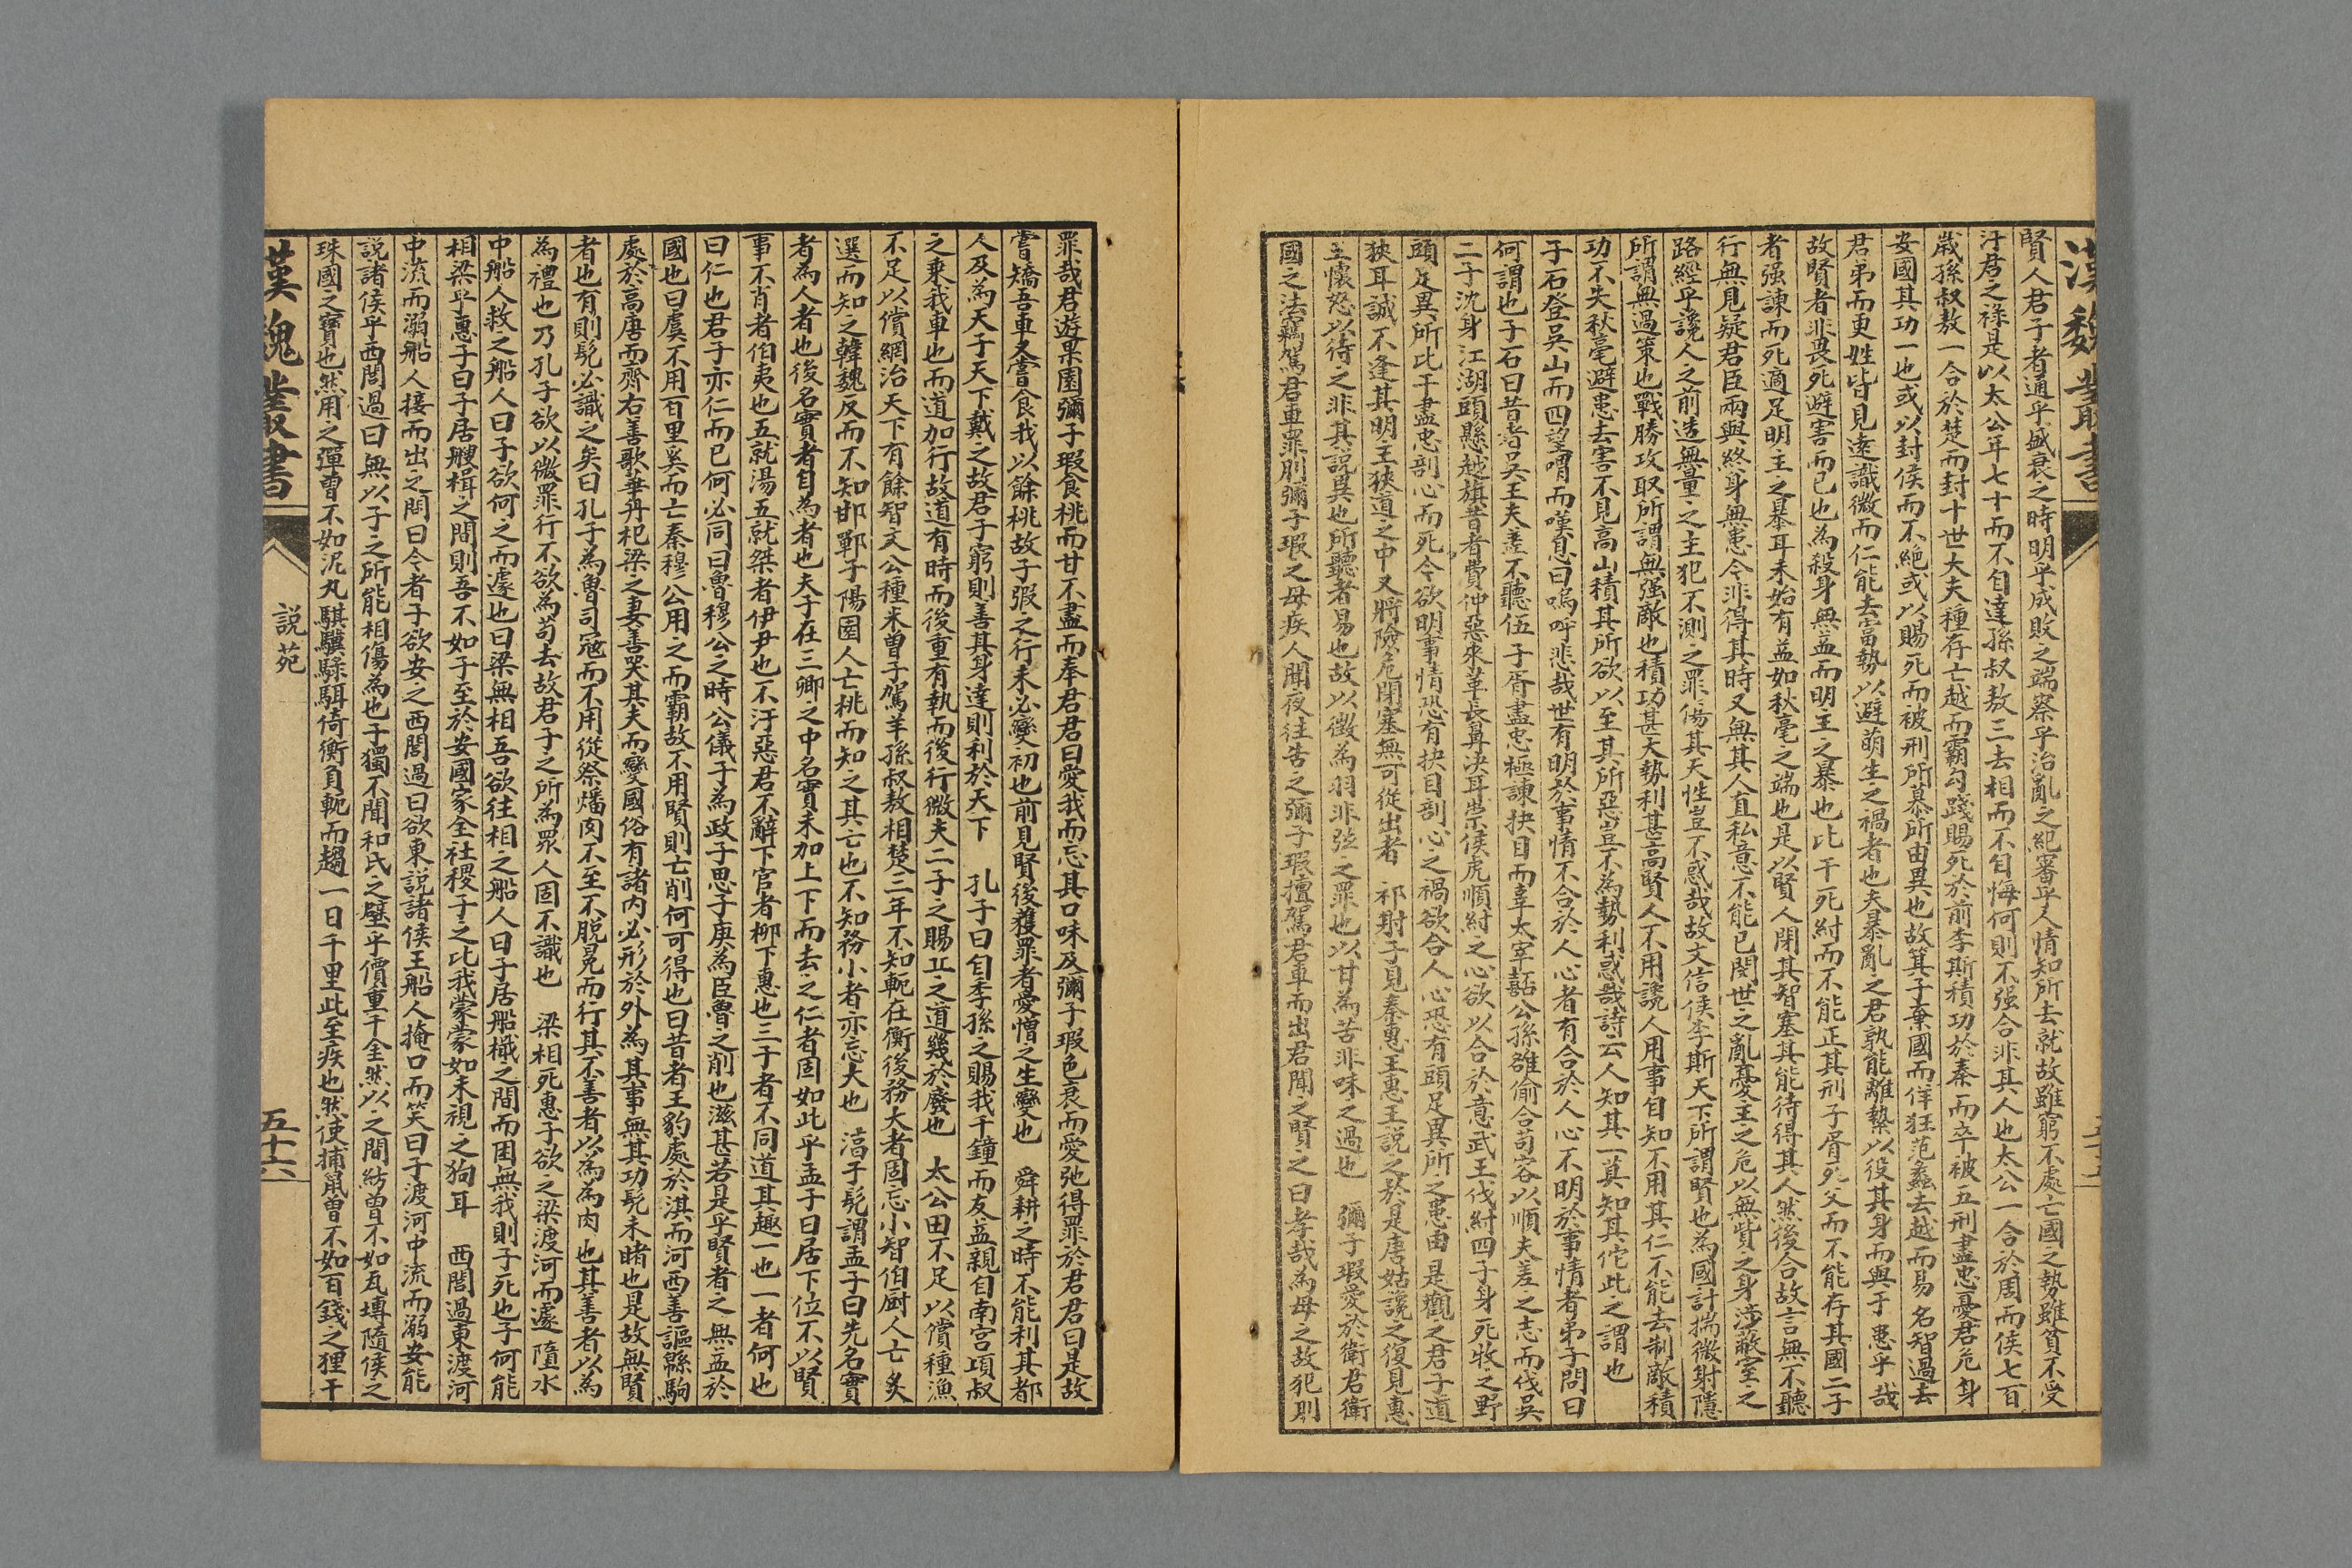 漢魏叢書
賢人君子者通乎盛衰之時明乎成敗之端察乎治亂之紀審乎人情知所去就故雖窮不處亡國之勢雖貧不受
汙君之祿是以太公年七十而不自達孫叔敖三去相而不自悔何則不强合非其人也太公一合於周而侯七百
歲孫叔敖一合於楚而封十世大夫種存亡越而霸勾踐賜死於前李斯積功於秦而卒被五刑盡忠憂君危身
安國其功一也或以封侯而不絶或以賜死而被刑所慕所由異也故箕子棄國而佯狂范蠡去越而易名智過去
君弟而更姓皆見遠識微而仁能去富勢以避萌生之禍者也夫暴亂之君孰能離縶以役其身而與于患乎哉
故賢者非畏死避害而已也為殺身無益而明主之暴也比干死紂而不能正其刑子胥死父而不能存其國二子
者强諫而死適足明主之暴耳未始有益如秋毫之端也是以賢人閉其智塞其能待得其人然後合故言無不聽
行無見疑君臣兩與終身無患今非得其時又無其人直私意不能已閔世之亂憂主之危以無貲之身涉蔽室之
路經乎讒人之前造無量之主犯不測之罪傷其天性豈不惑哉故文信侯李斯天下所謂賢也為國計揣微射隱
所謂無過策也戰勝攻取所謂無强敵也積功甚大勢利甚高賢人不用讒人用事自知不用其仁不能去制敵積
功不失秋毫避患去害不見高山積其所欲以至其所惡豈不為勢利惑哉詩云人知其一莫知其佗此之謂也
子石登吳山而四望喟而嘆息曰嗚呼悲哉世有明於事情不合於人心者有合於人心不明於事情者弟子問曰
何謂也子石曰昔者吳王夫差不聽伍子胥盡忠極諫抉目而辜太宰嚭公孫雒偷合苟容以順夫差之志而伐吳
二子沈身江湖頭懸越旗昔者費仲惡來革長鼻决耳崇侯虎順紂之心欲以合於意武王伐紂四子身死牧之野
頭足異所比干盡忠剖心而死今欲明事情恐有抉目剖心之禍欲合人心恐有頭足異所之患由是觀之君子道
狹耳誠不逢其明主狹道之中又將險危閉塞無可從出者　祁射子見秦惠王惠王説之於是唐姑讒之復見惠
王懷怒以待之非其説異也所聽者易也故以徵為羽非弦之罪也以甘為苦非味之過也　彌子瑕愛於衛君衛
國之法竊駕君車罪刖彌子瑕之母疾人聞夜往告之彌子瑕擅駕君車而出君聞之賢之曰孝哉為母之故犯刖
罪哉君遊果園彌子瑕食桃而甘不盡而奉君君曰愛我而忘其口味及彌子瑕色衰而愛弛得罪於君君曰是故
嘗矯吾車又嘗食我以餘桃故子瑕之行未必變初也前見賢後獲罪者愛憎之生變也　舜耕之時不能利其都
人及為天子天下戴之故君子窮則善其身達則利於天下　孔子曰自季孫之賜我千鍾而友益親自南宮項叔
之乘我車也而道加行故道有時而後重有執而後行微夫二子之賜丘之道幾於廢也　太公田不足以償種漁
不足以償網治天下有餘智文公種米曾子駕羊孫叔敖相楚三年不知軛在衡後務大者固忘小智伯厨人亡炙
選而知之韓魏反而不知邯鄲子陽園人亡桃而知之其亡也不知務小者亦忘大也　淳于髡謂孟子曰先名實
者為人者也後名實者自為者也夫子在三卿之中名實未加上下而去之仁者固如此乎孟子曰居下位不以賢
事不肖者伯夷也五就湯五就桀者伊尹也不汙惡君不辭下官者柳下惠也三子者不同道其趣一也一者何也
曰仁也君子亦仁而已何必同曰魯穆公之時公儀子為政子思子庚為臣魯之削也滋甚若是乎賢者之無益於
國也曰虞不用百里奚而亡秦穆公用之而霸故不用賢則亡削何可得也曰昔者王豹處於淇而河西善謳緜駒
處於高唐而齊右善歌華舟杞梁之妻善哭其夫而變國俗有諸內必形於外為其事無其功髡未睹也是故無賢
者也有則髡必識之矣曰孔子為魯司寇而不用從祭燔肉不至不脫冕而行其不善者以為為肉也其善者以為
為禮也乃孔子欲以微罪行不欲為苟去故君子之所為眾人固不識也　梁相死惠子欲之梁渡河而遽墮水
中船人救之船人曰子欲何之而遽也曰梁無相吾欲往相之船人曰子居船檝之間而困無我則子死也子何能
相梁乎惠子曰子居艘楫之間則吾不如子至於安國家全社稷子之比我蒙蒙如未視之狗耳　西閭過東渡河
中流而溺船人接而出之問曰今者子欲安之西閭過曰欲東説諸侯王船人掩口而笑曰子渡河中流而溺安能
説諸侯乎西閭過曰無以子之所能相傷為也子獨不聞和氏之璧乎價重千金然以之間紡曾不如瓦塼隨侯之
珠國之寶也然用之彈曾不如泥丸騏驥騄駬倚衡負軛而趨一日千里此至疾也然使捕鼠曾不如百錢之狸干
漢魏叢書
説苑
五十六